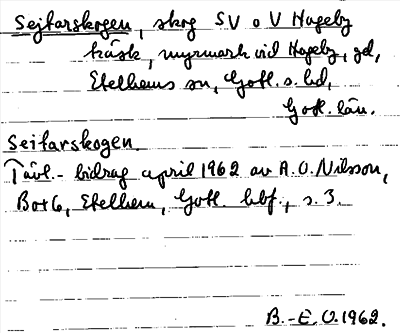 Sejtarskogen, skog SV o V Hageby
träsk, myrmark vid Hageby, gd,
Etelhems sn, Gotl. s. hd,
Gotl. län.
Seitarskogen.
Tävl.-bidrag april 1962 av A.O. Nilsson,
Box 6, Etelhem, Gotl. hbf., s. 3.
B.-E.O. 1962.